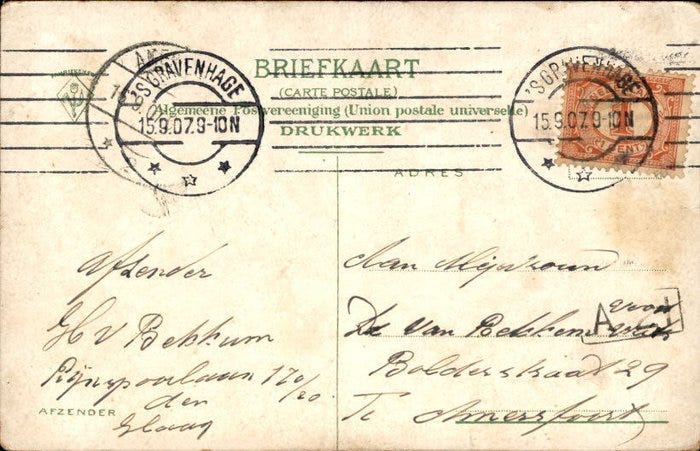 BRIEFKAART
(CARTE POSTALE)
Algemeene Postvereeniging (Union postale universelle)
DRUKWERK
'S GRAVENHAGE
15.9.07.9-10N
'S GRAVENHAGE
15.9.07.9-10N
1
CENT
ADRES
Afzender
H V Bekkum
170/20
den
Haag
AFZENDER
Aan Mejvrouw
van Bekkem
29
Te Amersfoort
A